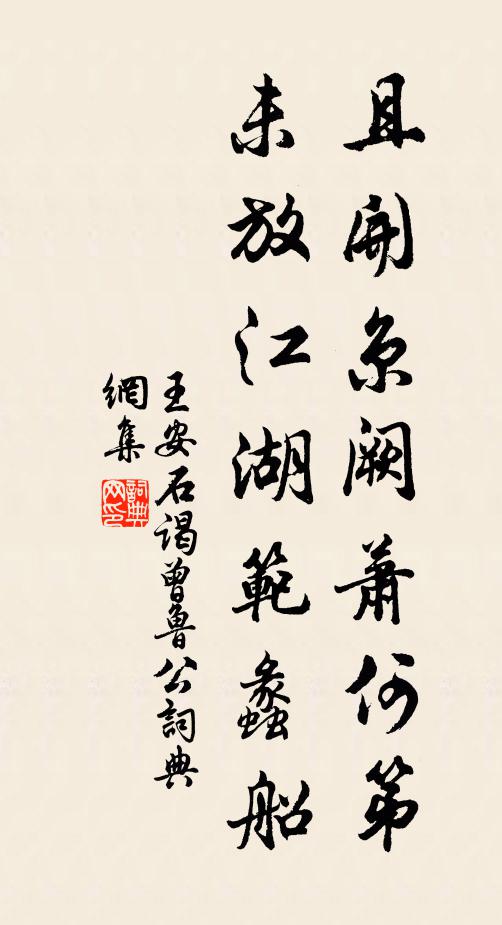 且開京闕蕭何第
未放江湖範蠡船
王安石謁曾魯公詞典
網集
詞典
网印